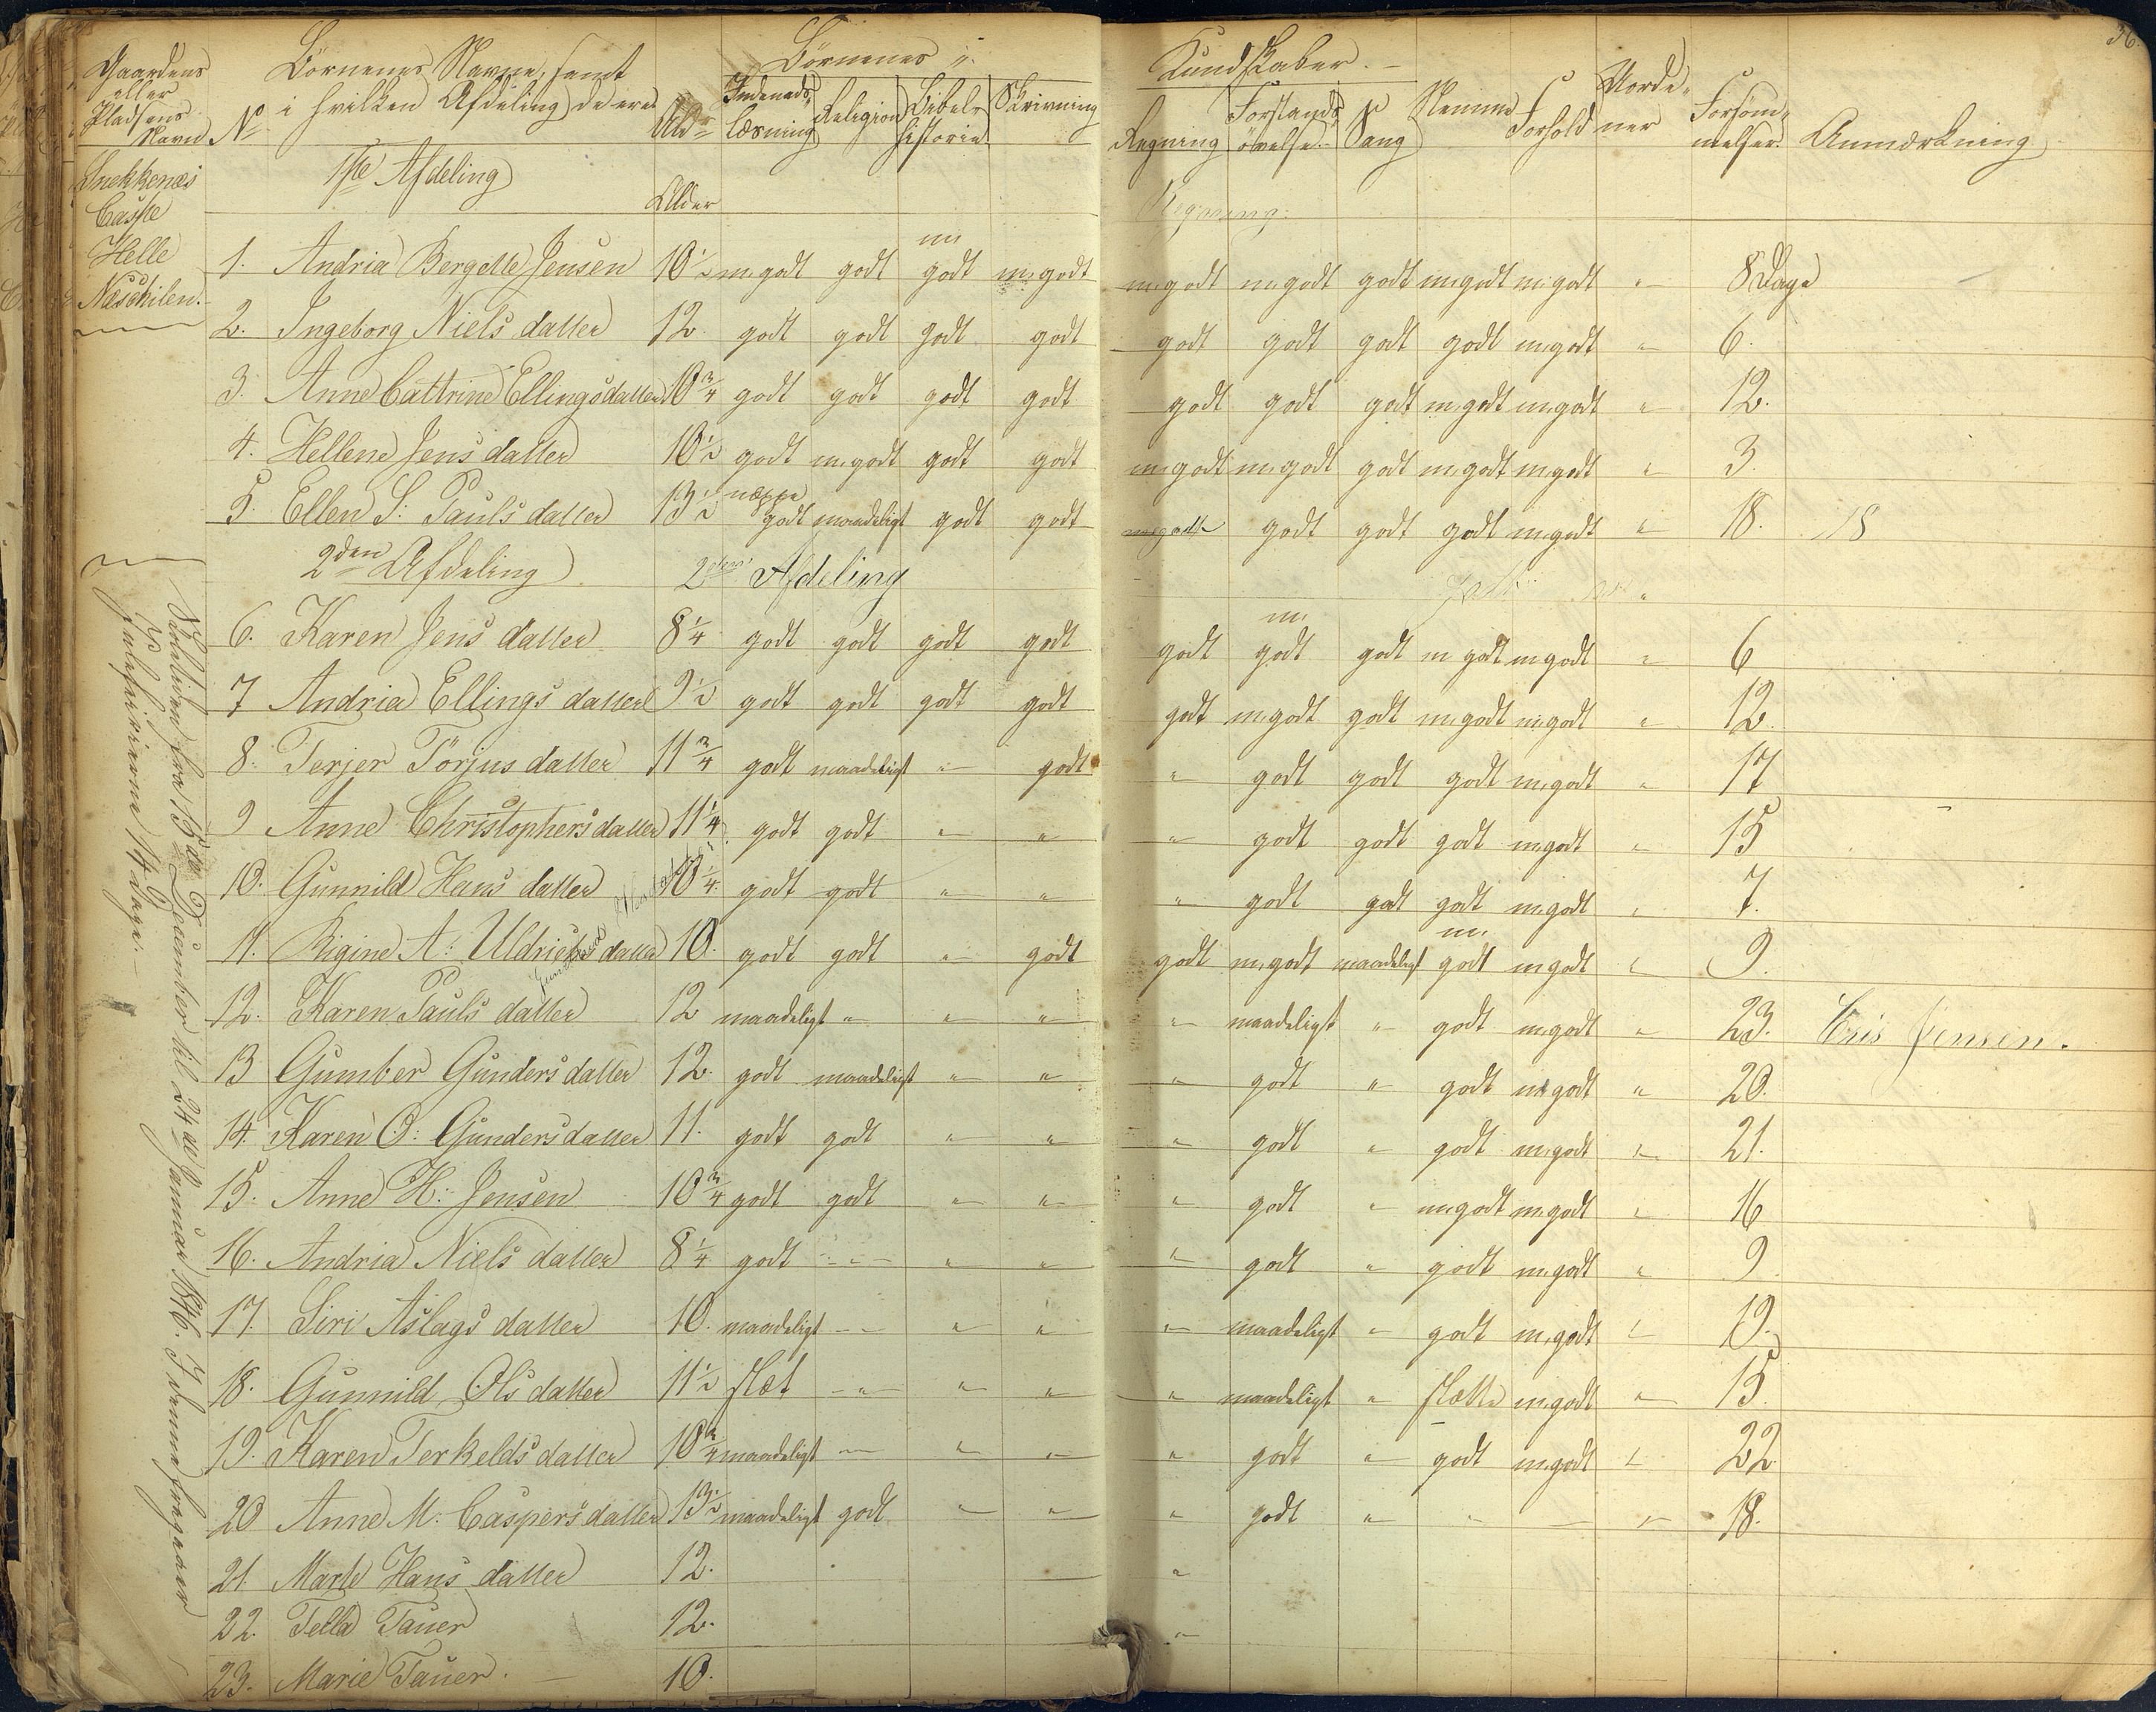 36.
Gaardens eller Pladsens Navn No Börnenes Navne, samt i hvilken Afdeling de ere Alder Börnenes Kundskaber.
Indenadslæsning Religion Bibelhistorie Skrivning Regning Forstandsövelse Sang Nemme Forhold Forsömmelser. Anmærkning
Snekkenæs
Casse
Helle
Næskilen.
1ste Afdeling Alder Regning.
1. Andria Bergette Jensen 10 1/2 m.godt godt m godt m.godt m.godt m.godt godt m.godt m.godt " 8 Dage
2. Ingeborg Niels datter 12 godt godt godt godt godt godt godt godt m.godt " 6.
3. Anne Cattrine Ellingsdatter 10 3/4 godt godt godt godt godt godt godt m.godt m.godt " 12.
4. Hellene Jens datter 10 1/2 godt m.godt godt godt m.godt m.godt godt m.godt m.godt " 3.
5. Ellen S: Pauls datter 13 1/2 næppe godt maadeligt godt godt m.godt godt godt godt m.godt " 18. 18
2den Afdeling 2den Afdeling
6. Karen Jens datter 8 1/4 godt godt godt godt godt m godt godt m godt m.godt " 6
7 Andria Ellings datter 9 1/2 godt godt godt godt godt m.godt godt m.godt m.godt " 12.
8. Terjer Törjus datter 11 3/4 godt maadeligt " godt " godt godt godt m.godt " 17
9 Anne Christophersdatter 11 1/4 godt godt " " " godt godt godt m.godt " 15
10. Gunnild Hans datter 10 1/4. godt godt " " " godt godt godt m.godt " 7.
11. Rigine A: Uldrichs datter 10. godt godt " godt godt m.godt maadeligt m. godt m.godt " 9.
12. Karen Pauls datter 12 maadeligt " " " " maadeligt " godt m.godt " 23. Cris Jensen.
13 Gumber Gunders datter 12. godt maadeligt " " " godt " godt m.godt " 20.
14. Karen O: Gundersdatter 11. godt godt " " " godt " godt m.godt " 21.
15. Anne H: Jensen 10 3/4 godt godt " " " godt " m.godt m.godt " 16
16. Andria Niels datter 8 1/4 godt " " " " godt " godt m.godt " 9
17. Siri Aslags datter 10. maadeligt " " " " maadeligt " godt m.godt " 19.
18. Gunnild Ols datter 11 1/2 slet " " " " maadeligt " slette m.godt " 15.
19. Karen Terkelds datter 10 3/4 maadeligt " " " " godt " godt m.godt " 22
20 Anne M. Caspers datter 13 1/2 maadeligt godt " " " godt " " " 18.
21. Marte Hans datter 12. "
22. Tella Tauer 12. "
23. Marie Tauer. 10.
Skoletiden fra 15de December til 24de Januar 1846. I denne fragaaer
Juleferierne 14 dage.